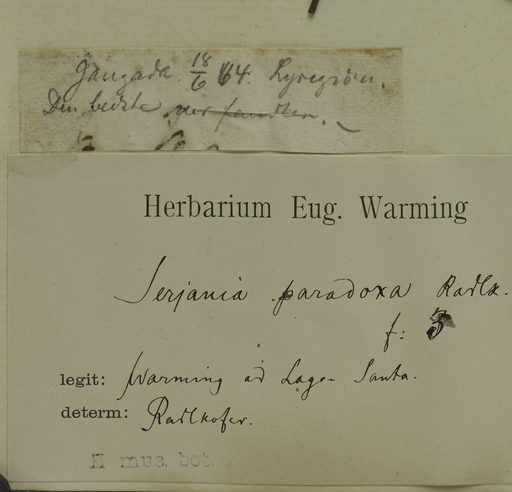 Jangada 18/6 64. Lysegrøn.
Den bedste
Herbarium Eug. Warming
Serjania paradoxa Radlk.
f: 3
legit: Warming ad Lagoa Santa.
determ: Radlkofer.
E mus. bot.